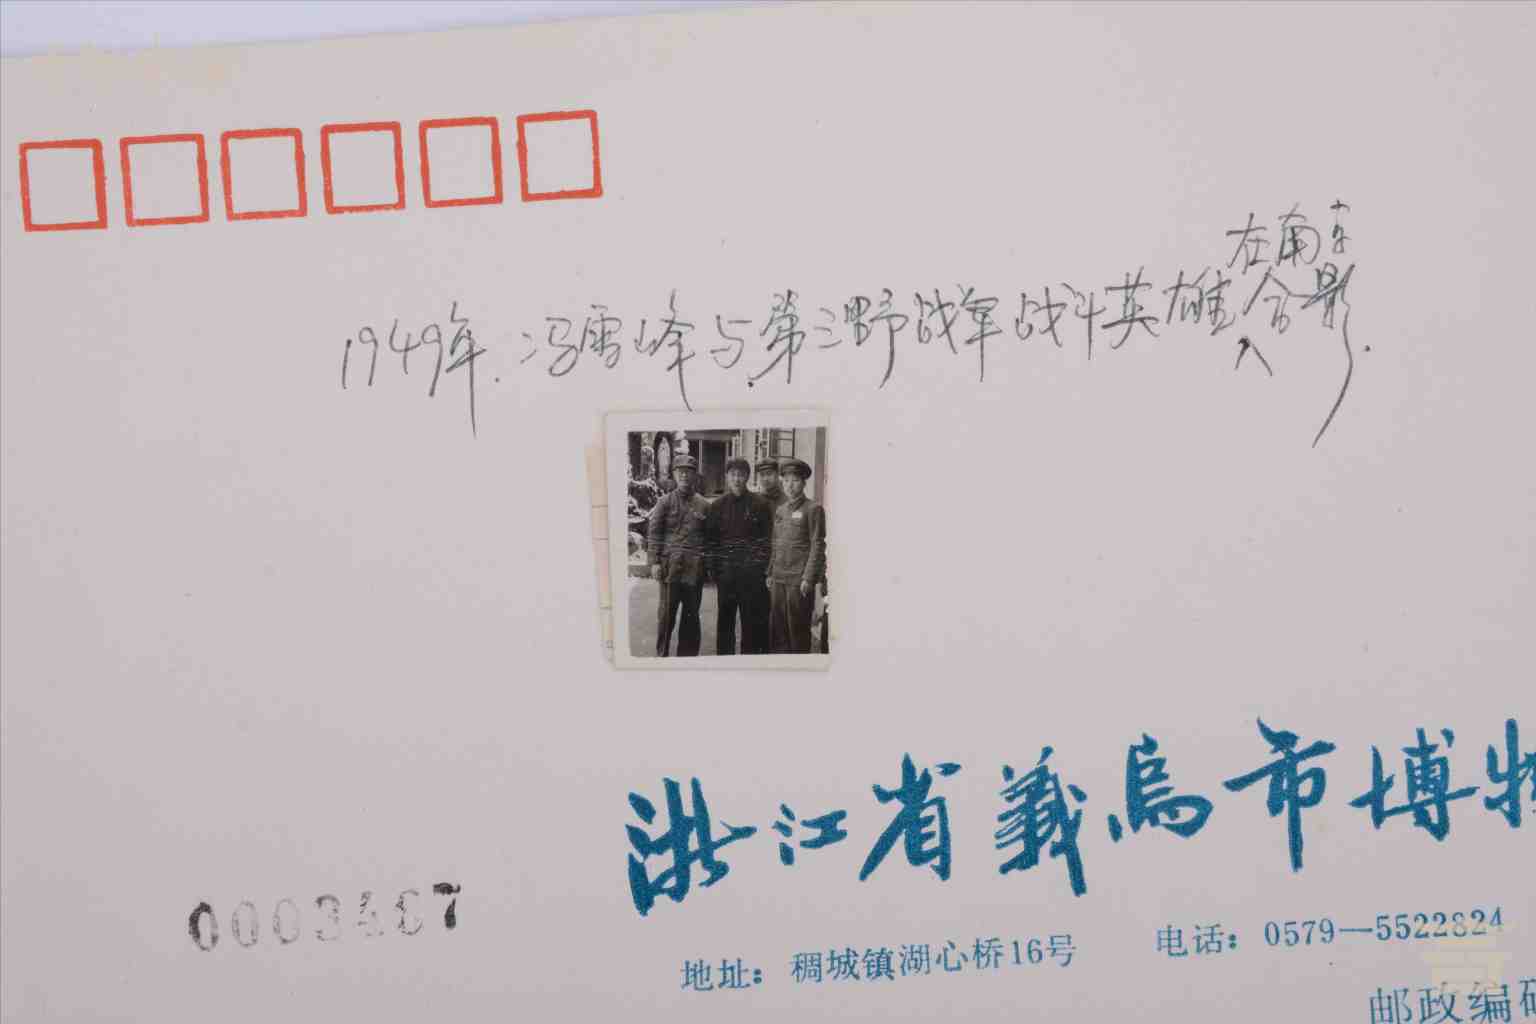 在南京
1949年.冯雪峰与第三野战军战斗英雄合影.
浙江省義烏市博物
0003467
地址：稠城镇湖心桥16号 电话：0579—5522824
邮政编码